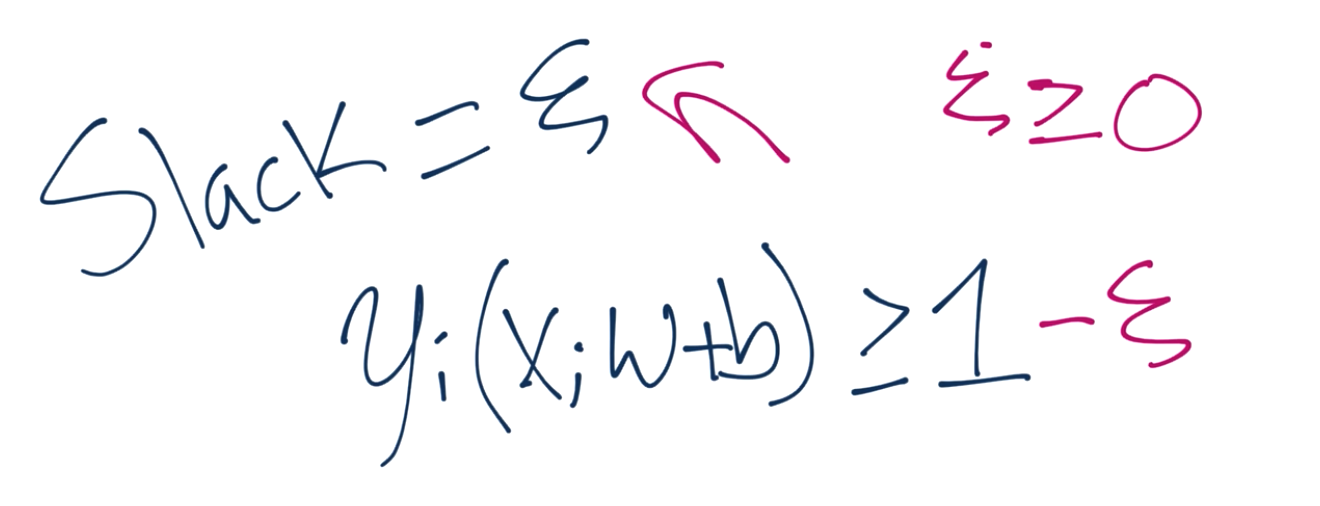 Slack = ξ ξ ≥ 0
yᵢ(xᵢw+b) ≥ 1 - ξ